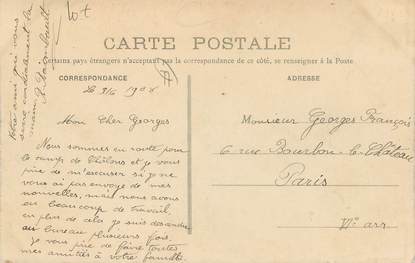 Lot
CARTE POSTALE
Certains pays étrangers n'acceptant pas la correspondance de ce côté, se renseigner à la Poste.
CORRESPONDANCE
ADRESSE
Le 3/6 1908
Mon Cher Georges
Nous sommes en route pour
le camp de Châlons et je vous
prie de m'excuser si je ne
vous ai pas envoyé de mes
nouvelles, mais nous avons
eu beaucoup de travail,
en plus de cela je suis descendu
au bureau plusieurs fois.
Je vous prie de faire toutes
mes amitiés à votre famille.
Votre ami qui vous
serre cordialement la
main
Monsieur Georges François
6 rue Bourbon-le-Château
Paris
VIe arr